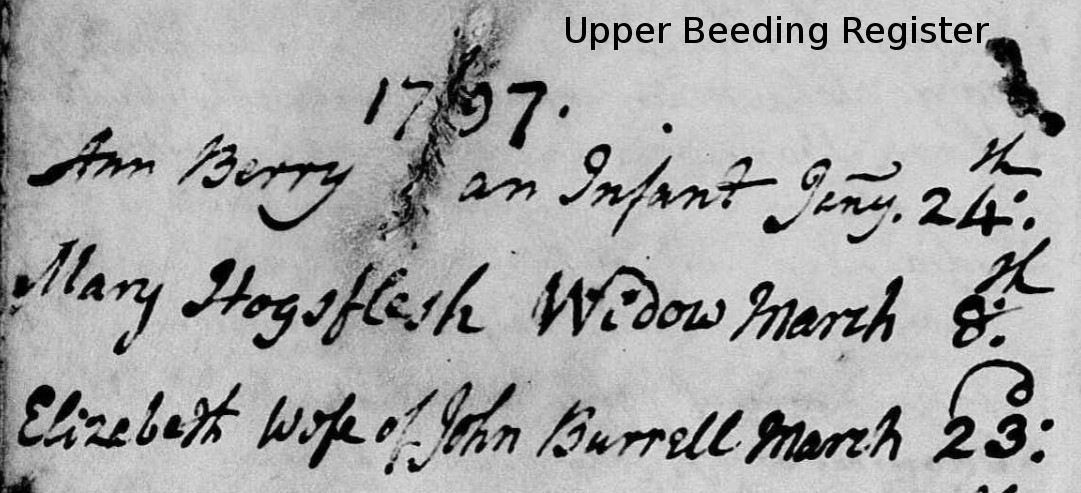 Upper Beeding Register
1797.
Ann Berry an Infant Jany. 24th:
Mary Hogsflesh Widow March 8th:
Elizabeth Wife of John Burrell March 23d: